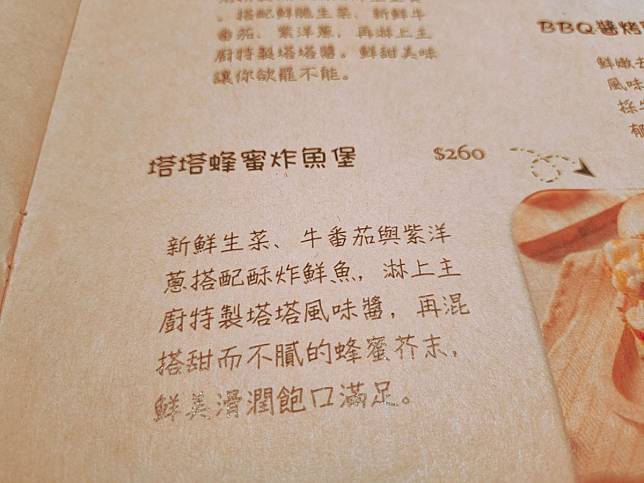 ，搭配鮮脆生菜、新鮮牛
番茄、紫洋蔥，再淋上主
廚特製塔塔醬。鮮甜美味
讓你欲罷不能。
BBQ醬烤
鮮嫩
風味
採
郁
塔塔蜂蜜炸魚堡 $260
新鮮生菜、牛番茄與紫洋
蔥搭配酥炸鮮魚，淋上主
廚特製塔塔風味醬，再混
搭甜而不膩的蜂蜜芥末，
鮮美滑潤飽口滿足。